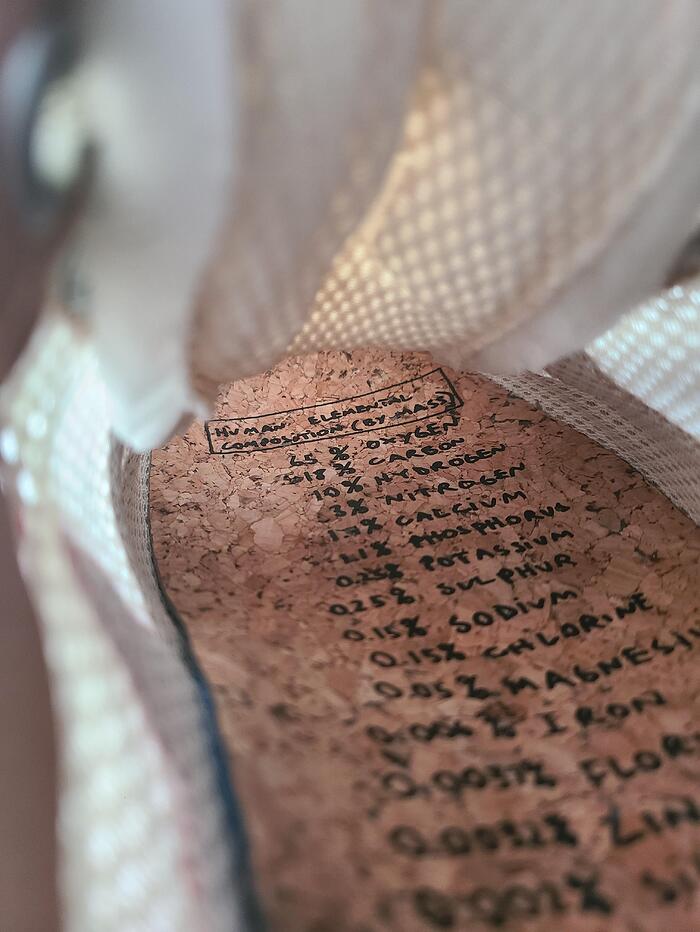 HUMAN ELEMENTAL
COMPOSITION (BY MASS)
65 % OXYGEN
18 % CARBON
10% HYDROGEN
3% NITROGEN
CALCIUM
1.1% PHOSPHORUS
0.25% POTASSIUM
0.25% SULPHUR
0.15% SODIUM
0.15% CHLORINE
0.05% MAGNESI
0.006 % IRON
0.0037% FLOR
0.0032% ZIN
0.002% SI